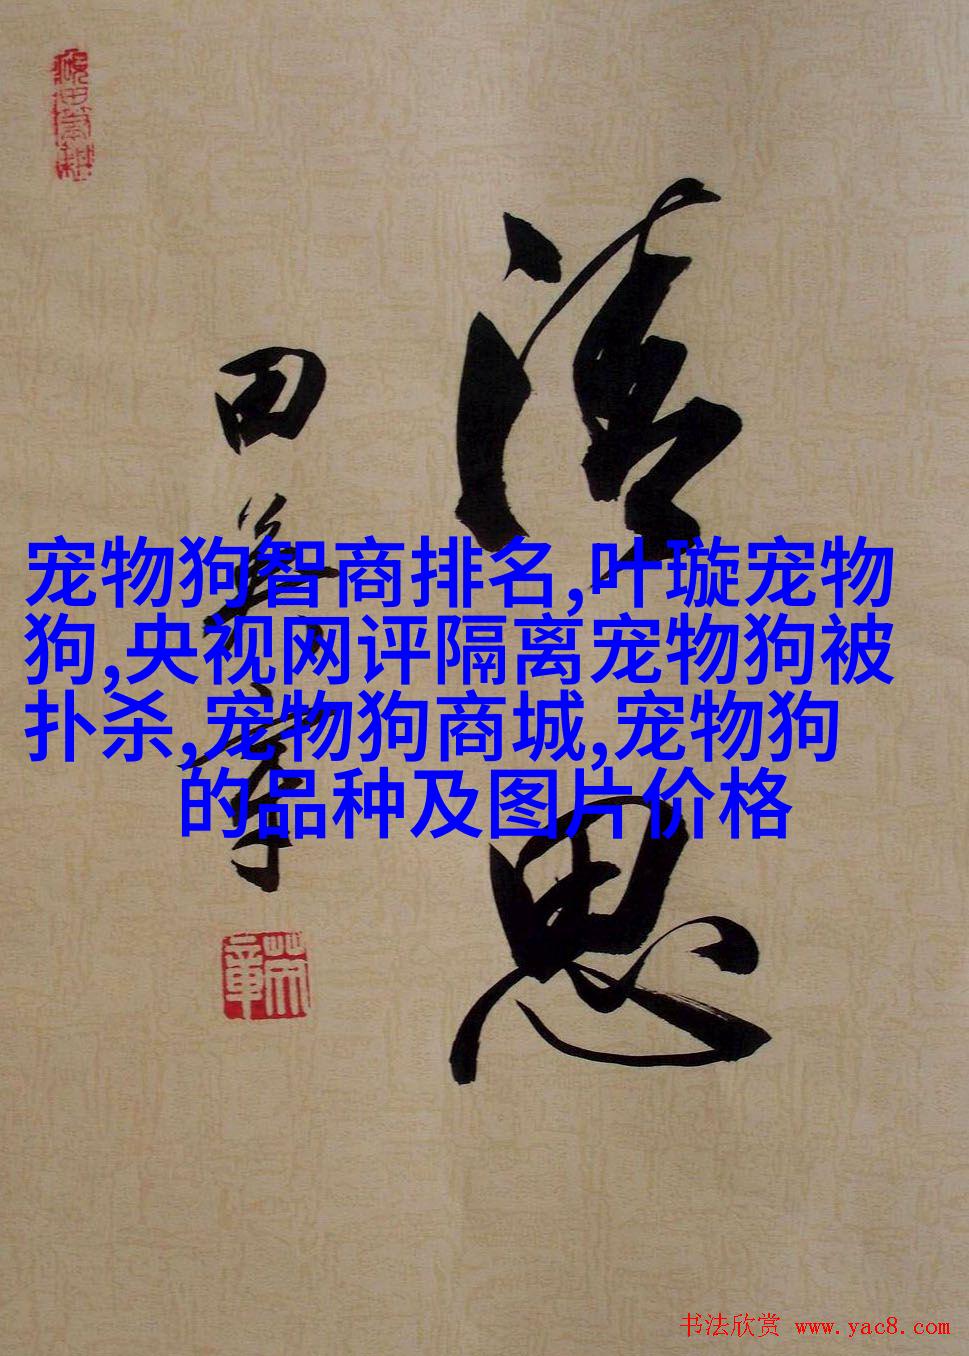 宠物狗智商排名,叶璇宠物
狗,央视网评隔离宠物狗被
扑杀,宠物狗商城,宠物狗
的品种及图片价格
思
田英章
书法欣赏 www.yac8.com